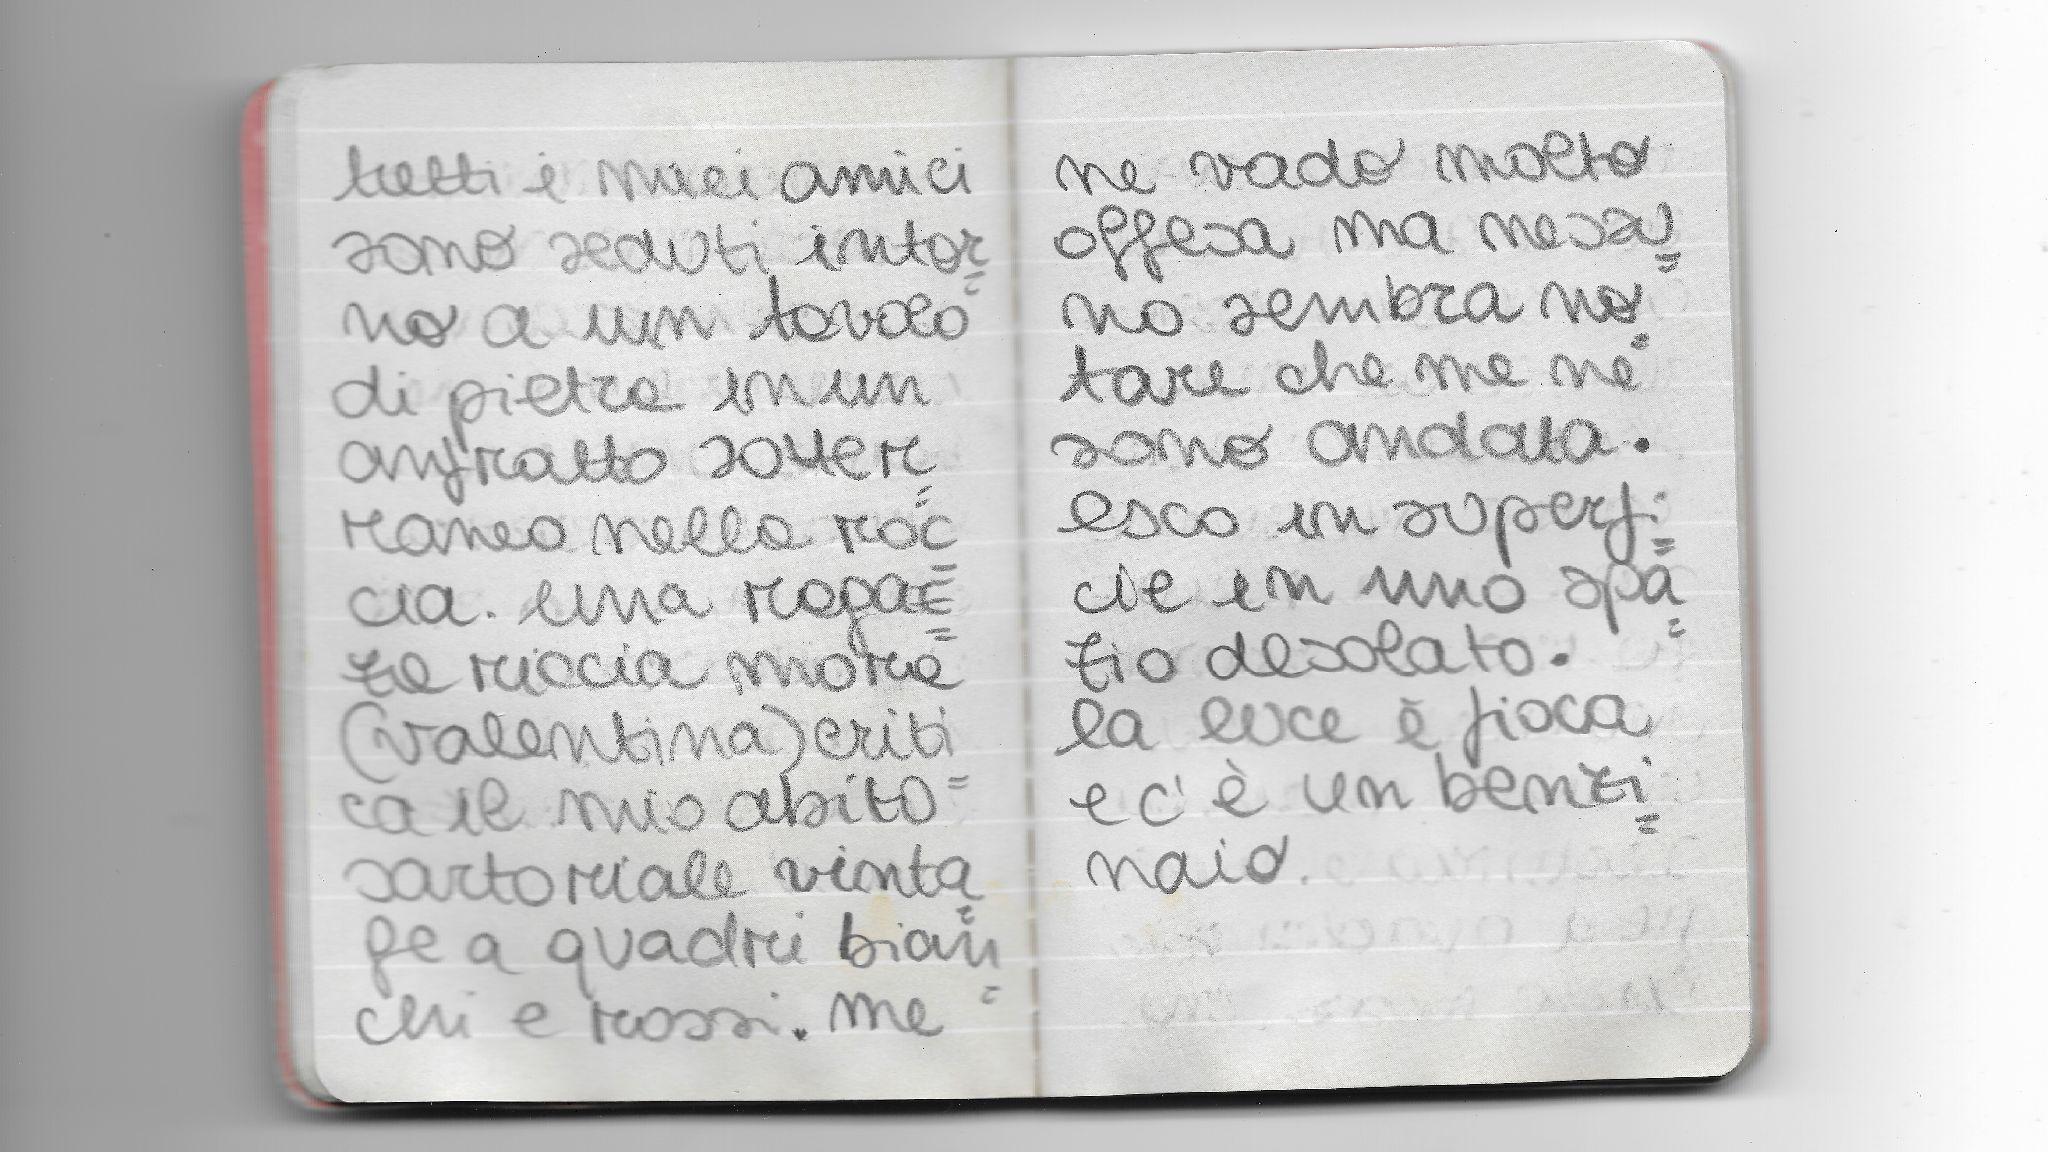 tutti i miei amici
sono seduti intor=
no a un tavolo
di pietra in un
anfratto sotter=
raneo nella roc=
cia. una ragaz=
za riccia mora
(valentina) criti=
ca il mio abito
sartoriale vinta=
ge a quadri bian=
chi e rossi. me
ne vado molto
offesa ma nessu=
no sembra no=
tare che me ne
sono andata.
esco in superfi=
cie in uno spa=
zio desolato.
la luce è fioca
e c'è un benzi=
naio.